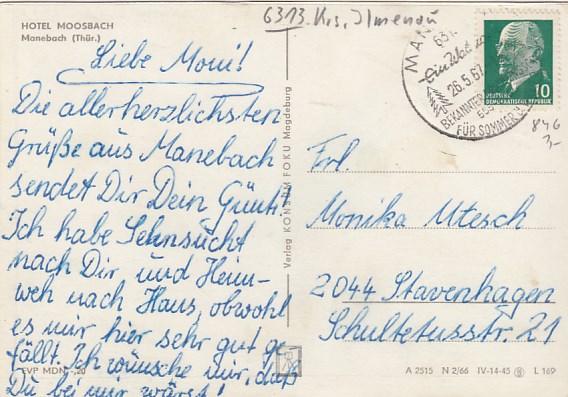 HOTEL MOOSBACH
Manebach (Thür.)
6313. Krs. Ilmenau
Liebe Moni!
Die allerherzlichsten
Grüße aus Manebach
sendet Dir Dein Günti!
Ich habe Sehnsucht
nach Dir und Heim-
weh nach Haus, obwohl
es mir hier sehr gut ge-
fällt. Ich wünsche mir, daß
Du bei mir wärst!
EVP MDN -,20
Verlag KONSUM FOKU Magdeburg
MAN
631
26.5.67
BEKANNTES
FÜR SOMMER
10
DEUTSCHE
DEMOKRATISCHE REPUBLIK
846
3,-
Frl.
Monika Utesch
2044 Stavenhagen
Schultetusstr. 21
A 2515 N 2/66 IV-14-45 L 169